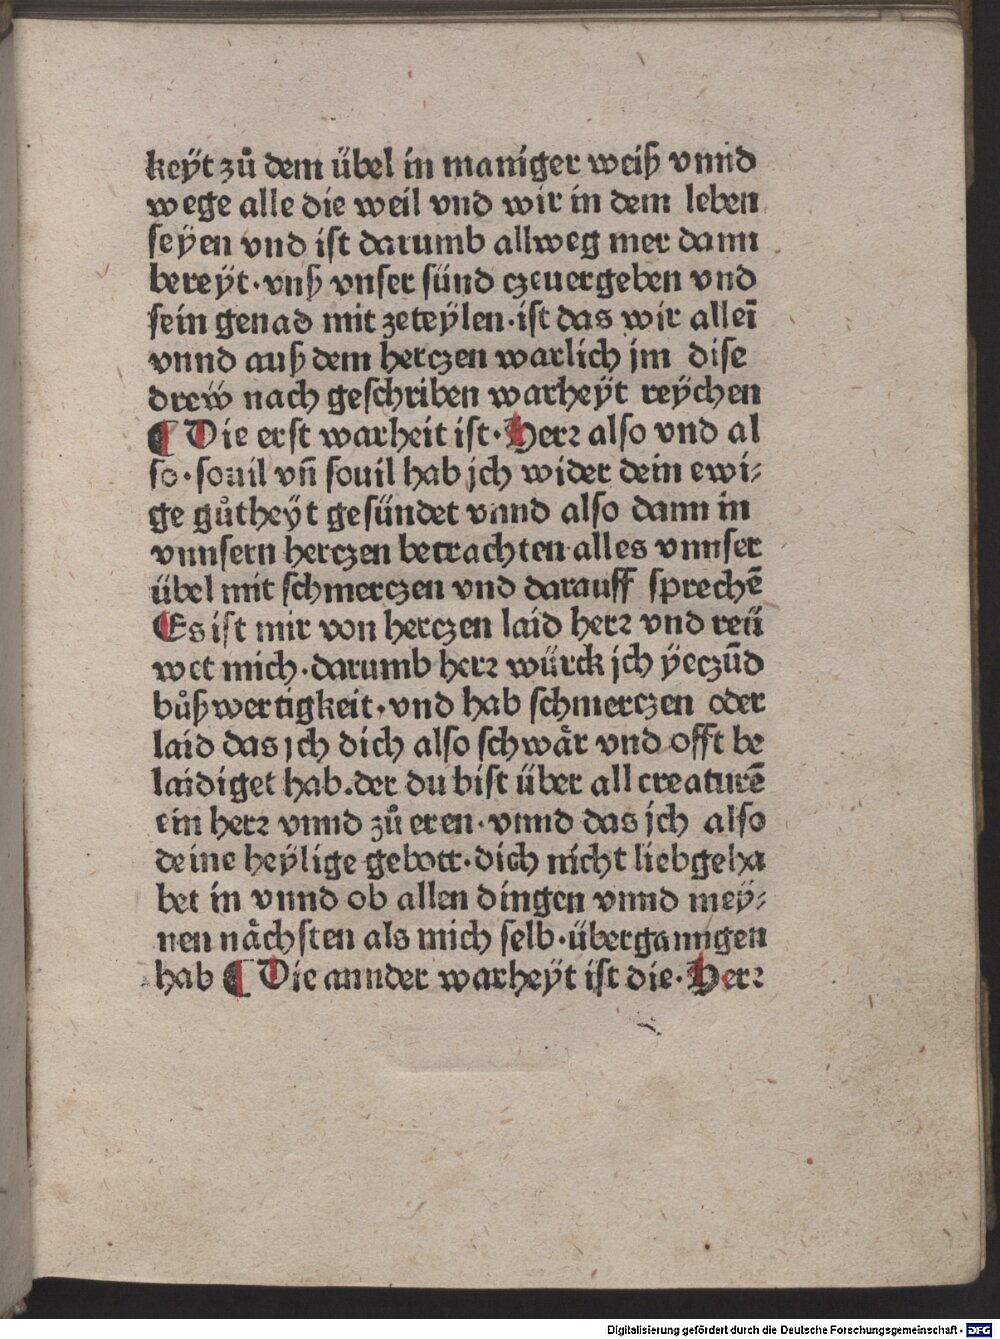 keÿt zů dem übel in maniger weiß vnnd
wege alle die weil vnd wir in dem leben
seyen vnd ist darumb allweg mer dann
bereÿt·vnß vnser sünd czeuergeben vnd
sein genad mit zeteÿlen·ist das wir alleī
vnnd auß dem herczen warlich jm dise
dreẅ nach geschriben warheÿt reÿchen
¶ Die erst warheit ist·Herꝛ also vnd al
so·souil vn̄ souil hab jch wider dein ewi⸗
ge gůtheÿt gesündet vnnd also dann in
vnnsern herczen betrachten alles vnnser
übel mit schmerczen vnd darauff sprechē
Es ist mir von herczen laid herꝛ vnd reü
wet mich·darumb herꝛ würck jch ÿeczūd
bůßwertigkeit·vnd hab schmerczen oder
laid das jch dich also schwår vnd offt be
laidiget hab.der du bist über all creaturē
ein herꝛ vnnd zů eren·vnnd das jch also
deine heÿlige gebott·dich nicht liebgeha
bet in vnnd ob allen dingen vnnd meÿ⸗
nen nåchsten als mich selb·überganngen
hab ¶ Die annder warheÿt ist die·Herꝛ
Digitalisierung gefördert durch die Deutsche Forschungsgemeinschaft - DFG